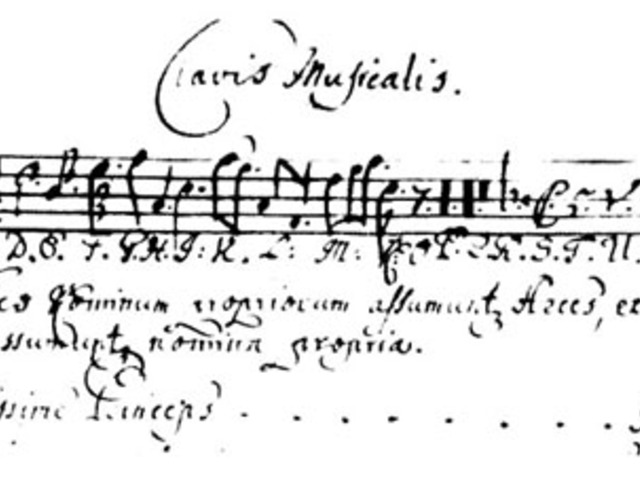 Clavis Musicalis.
D. E. F. G. H. I: K. L: M: O P. Q R. S. T. U.
Nominum propriorum assumunt Arces, et
assumunt nomina propria.
Princeps . . . . . . . .